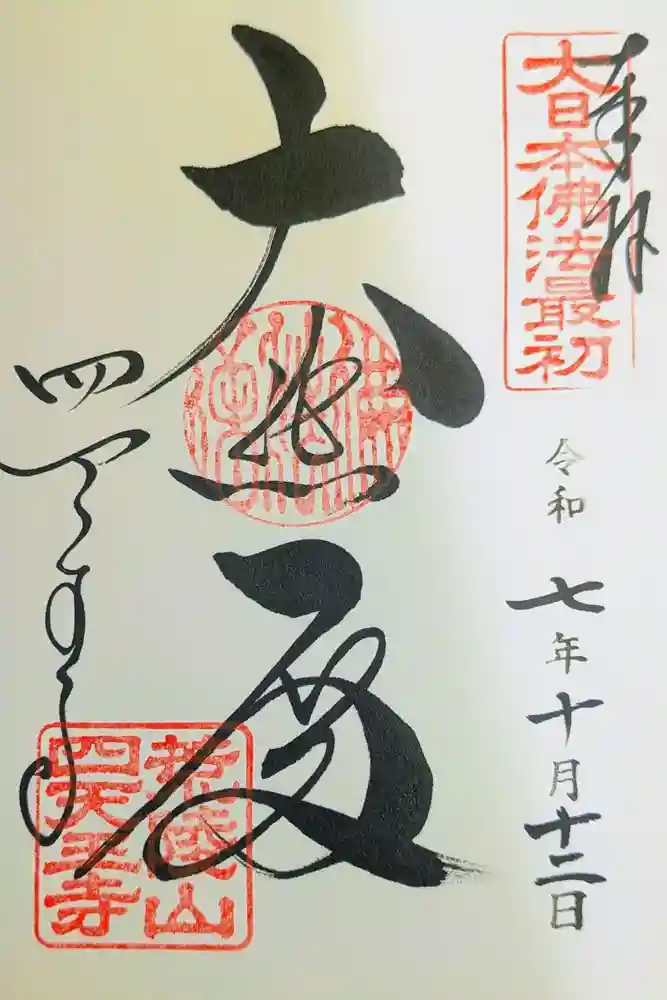 奉拝
大日本佛法最初
令和七年十月十二日
大悲殿
四天王寺
荒陵山
四天王寺